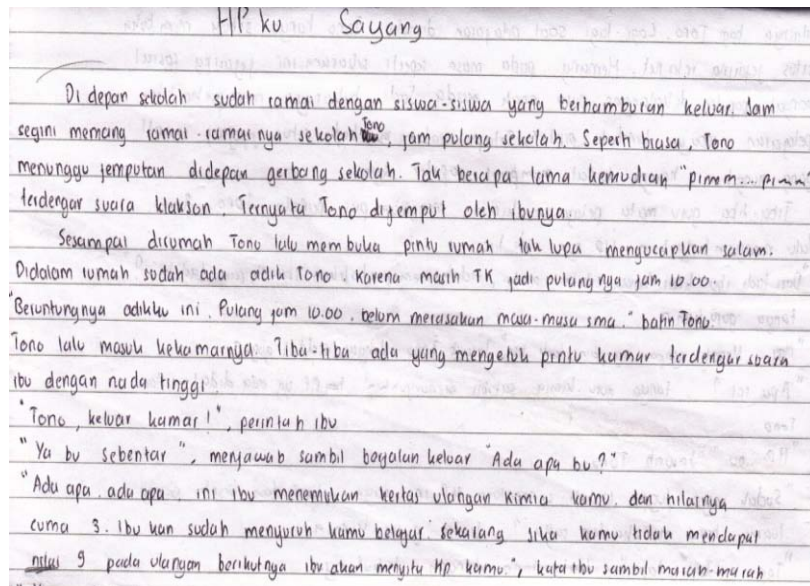 HP ku Sayang
Di depan sekolah sudah ramai dengan siswa-siswa yang berhamburan keluar. Jam
segini memang ramai-ramainya sekolah Tono, jam pulang sekolah. Seperti biasa, Tono
menunggu jemputan didepan gerbang sekolah. Tak berapa lama kemudian "pimmm...
terdengar suara klakson. Ternyata Tono dijemput oleh ibunya
Sesampai dirumah Tono lalu membuka pintu rumah tak lupa mengucapkan salam.
Didalam rumah sudah ada adik Tono. Karena masih TK jadi pulangnya jam 10.00.
"Beruntungnya adikku ini. Pulang jam 10.00. belum merasakan masa-masa sma." batin Tono.
Tono lalu masuk kekamarnya. Tiba-tiba ada yang mengetuk pintu kamar terdengar suara
ibu dengan nada tinggi
"Tono, keluar kamar!", perintah ibu
"Ya bu sebentar", menjawab sambil bejalan keluar "Ada apa bu?"
"Ada apa. ada apa ini ibu menemukan kertas ulangan kimia kamu. dan nilainya
cuma 3. Ibu kan sudah menyuruh kamu belajar sekarang jika kamu tidak mendapat
nilai 9 pada ulangan berikutnya ibu akan menyita Hp kamu", kata ibu sambil marah-marah